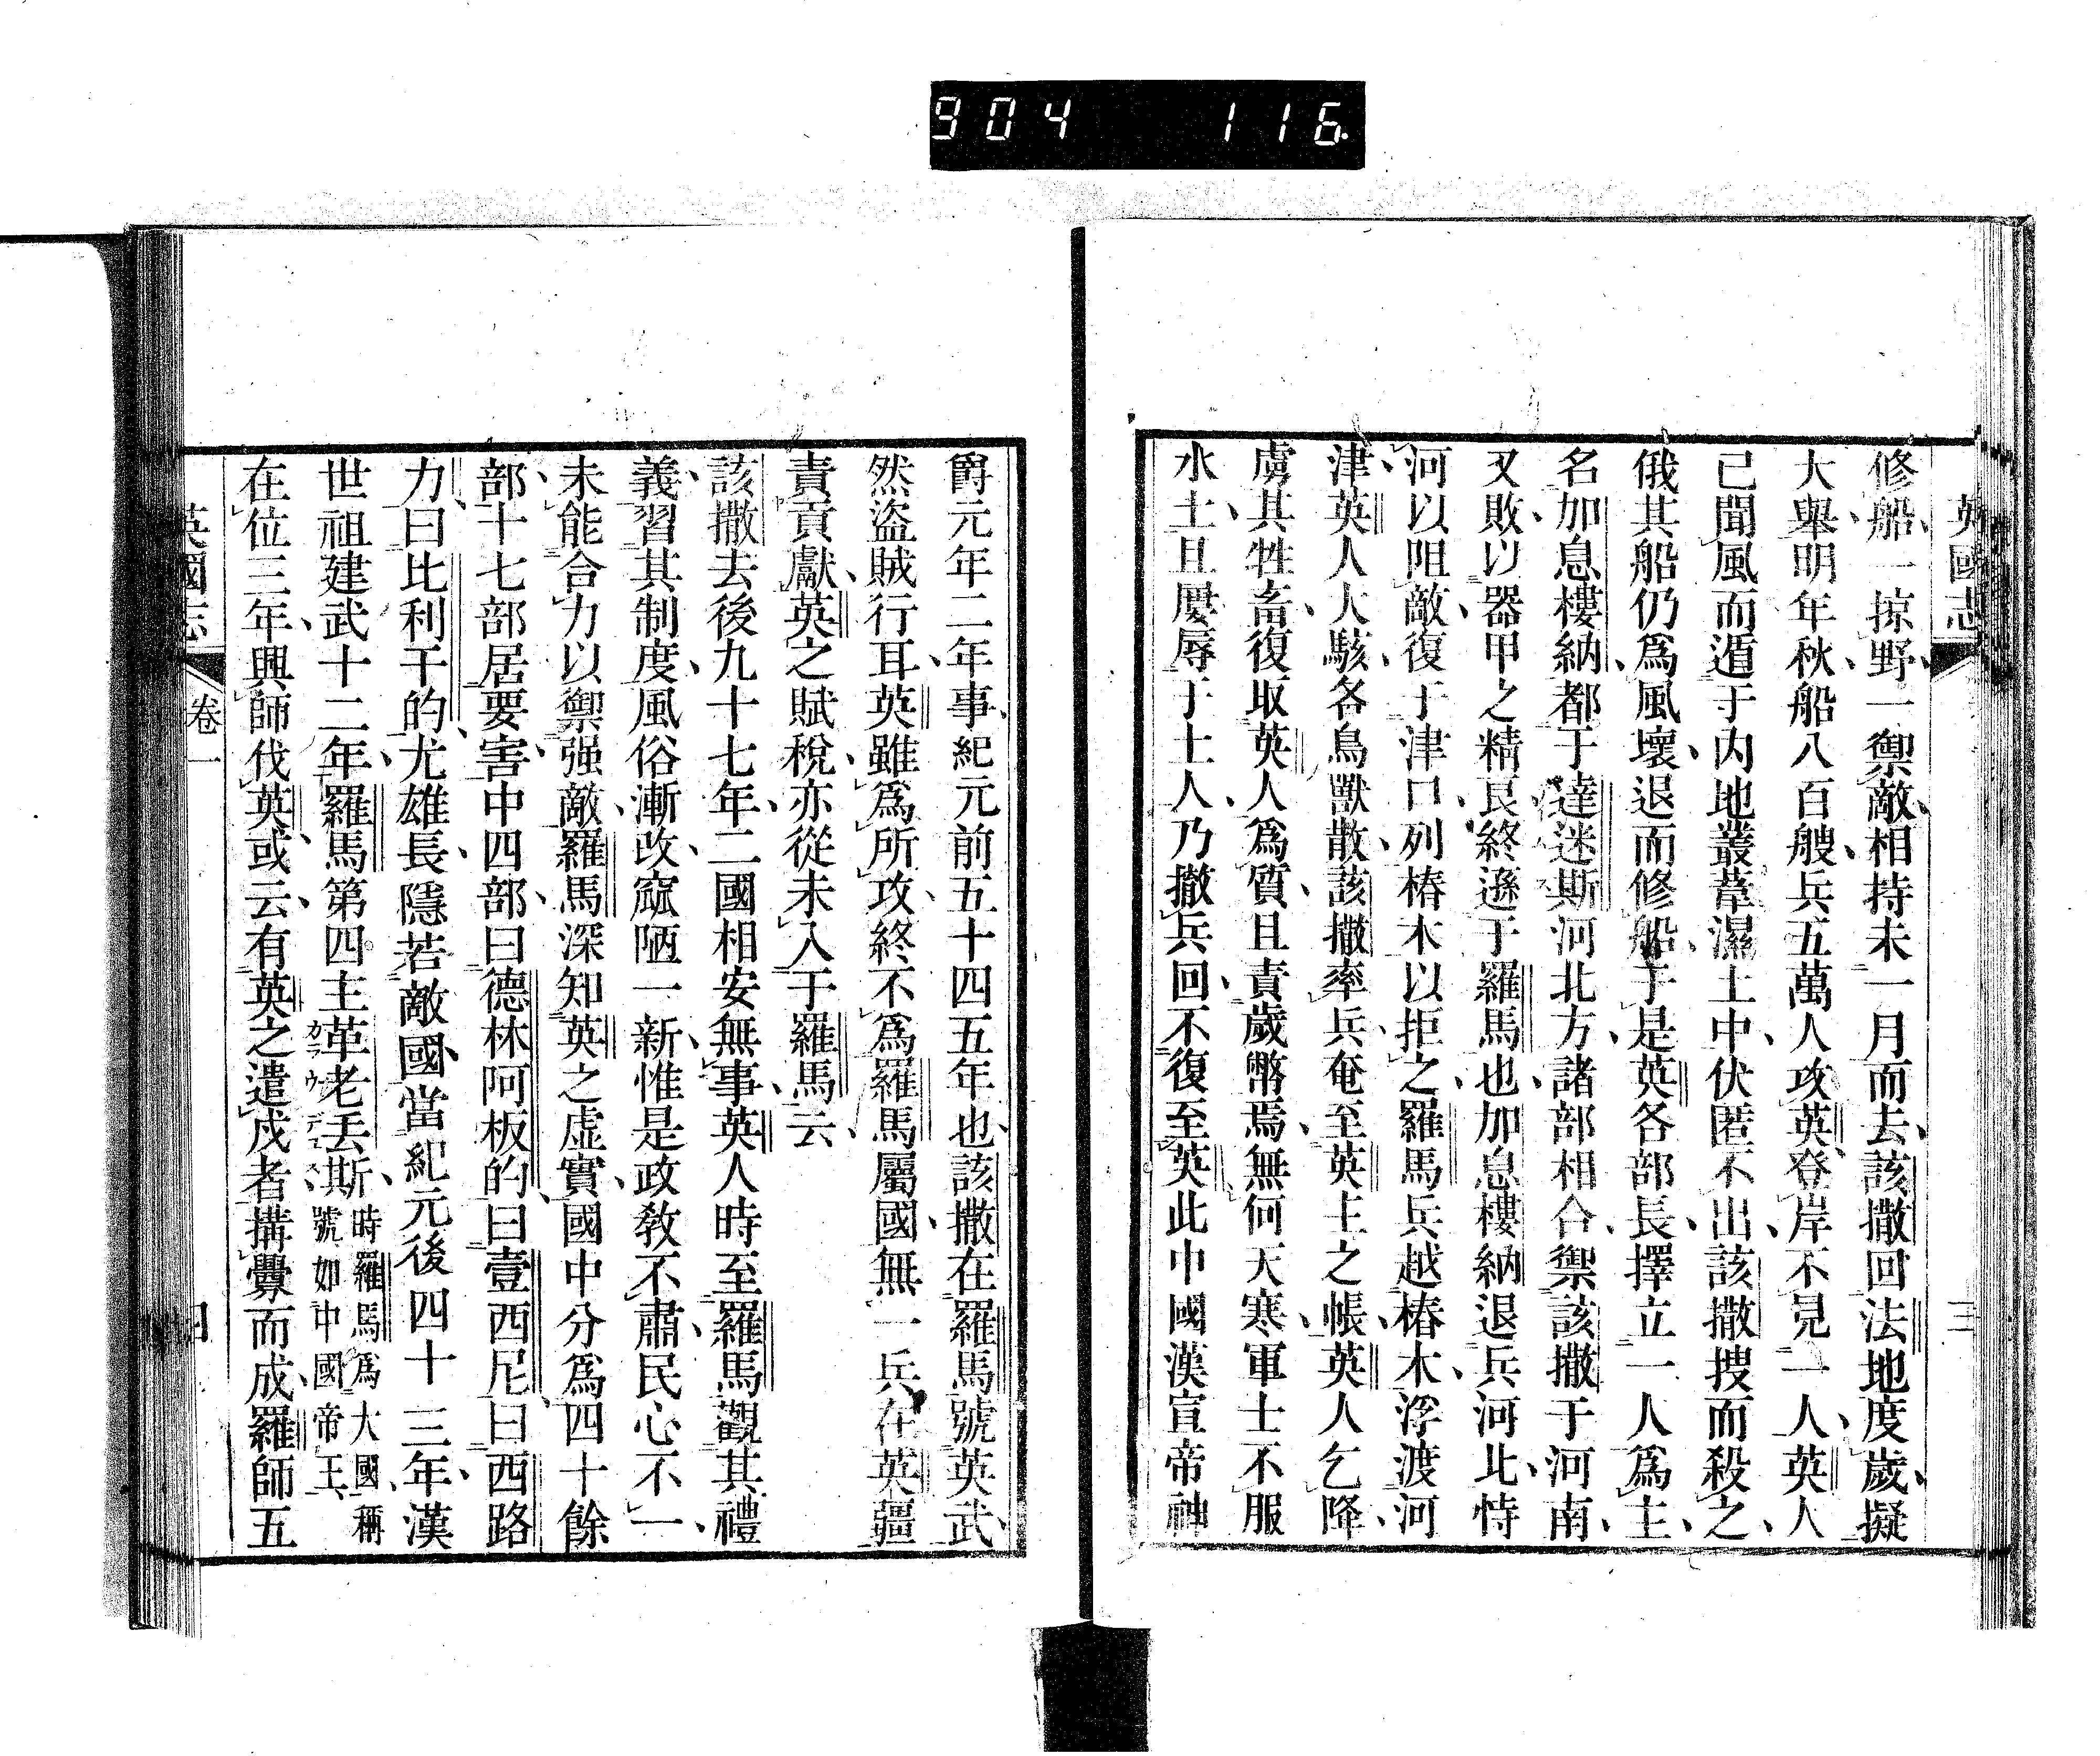 904 116.
英國志
三
修船一掠野一禦敵相持未一月而去該撒回法地度歲擬
大舉明年秋船八百艘兵五萬人攻英登岸不見一人英人
已聞風而遁于内地叢葦濕土中伏匿不出該撒搜而殺之
俄其船仍爲風壞退而修船于是英各部長擇立一人爲主
名加息樓納都于達迷斯河北方諸部相合禦該撒于河南
又敗以器甲之精良終遜于羅馬也加息樓納退兵河北恃
河以阻敵復于津口列樁木以拒之羅馬兵越樁木浮渡河
津英人大駭各鳥獸散該撒率兵奄至英主之帳英人乞降
虜其牲畜復取英人爲質且責歲幣焉無何天寒軍士不服
水土且屢辱于土人乃撤兵回不復至英此中國漢宣帝神
爵元年二年事紀元前五十四五年也該撒在羅馬號英武
然盜賊行耳英雖爲所攻終不爲羅馬屬國無一兵在英疆
責貢獻英之賦稅亦從未入于羅馬云
該撒去後九十七年二國相安無事英人時至羅馬觀其禮
義習其制度風俗漸改窳陋一新惟是政教不肅民心不一
未能合力以禦强敵羅馬深知英之虛實國中分爲四十餘
部十七部居要害中四部曰德林阿板的曰壹西尼曰西路
力曰比利干的尤雄長隱若敵國當紀元後四十三年漢
世祖建武十二年羅馬第四主革老丟斯時羅馬爲大國稱號如中國帝王
カラウデユス
在位三年興師伐英或云有英之遣戍者搆釁而成羅師五
英國志
卷一
四